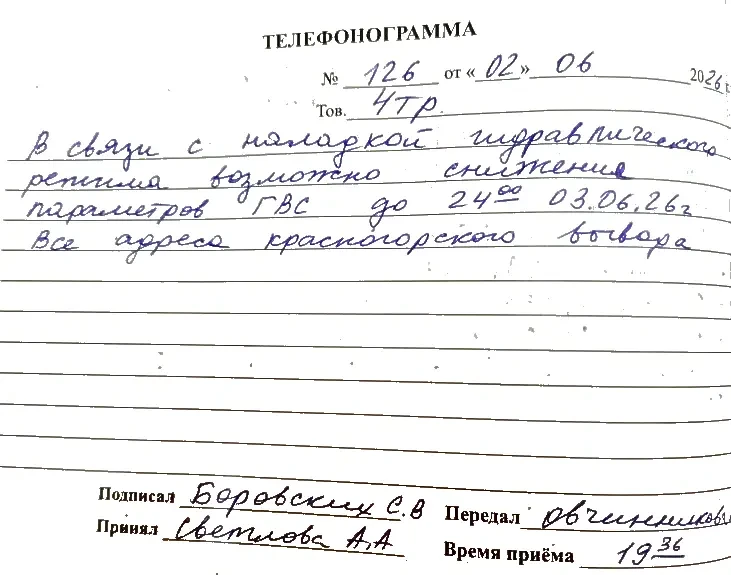 ТЕЛЕФОНОГРАММА
№ 126 от «02» 06 2026 г.
Тов. 4тр.
В связи с наладкой гидравлического
режима возможно снижения
параметров ГВС до 24⁰⁰ 03.06.26г
Все адреса красногорского вывора
Подписал Боровских С.В Передал Овчинникова
Принял Светлова А,А Время приёма 19³⁶